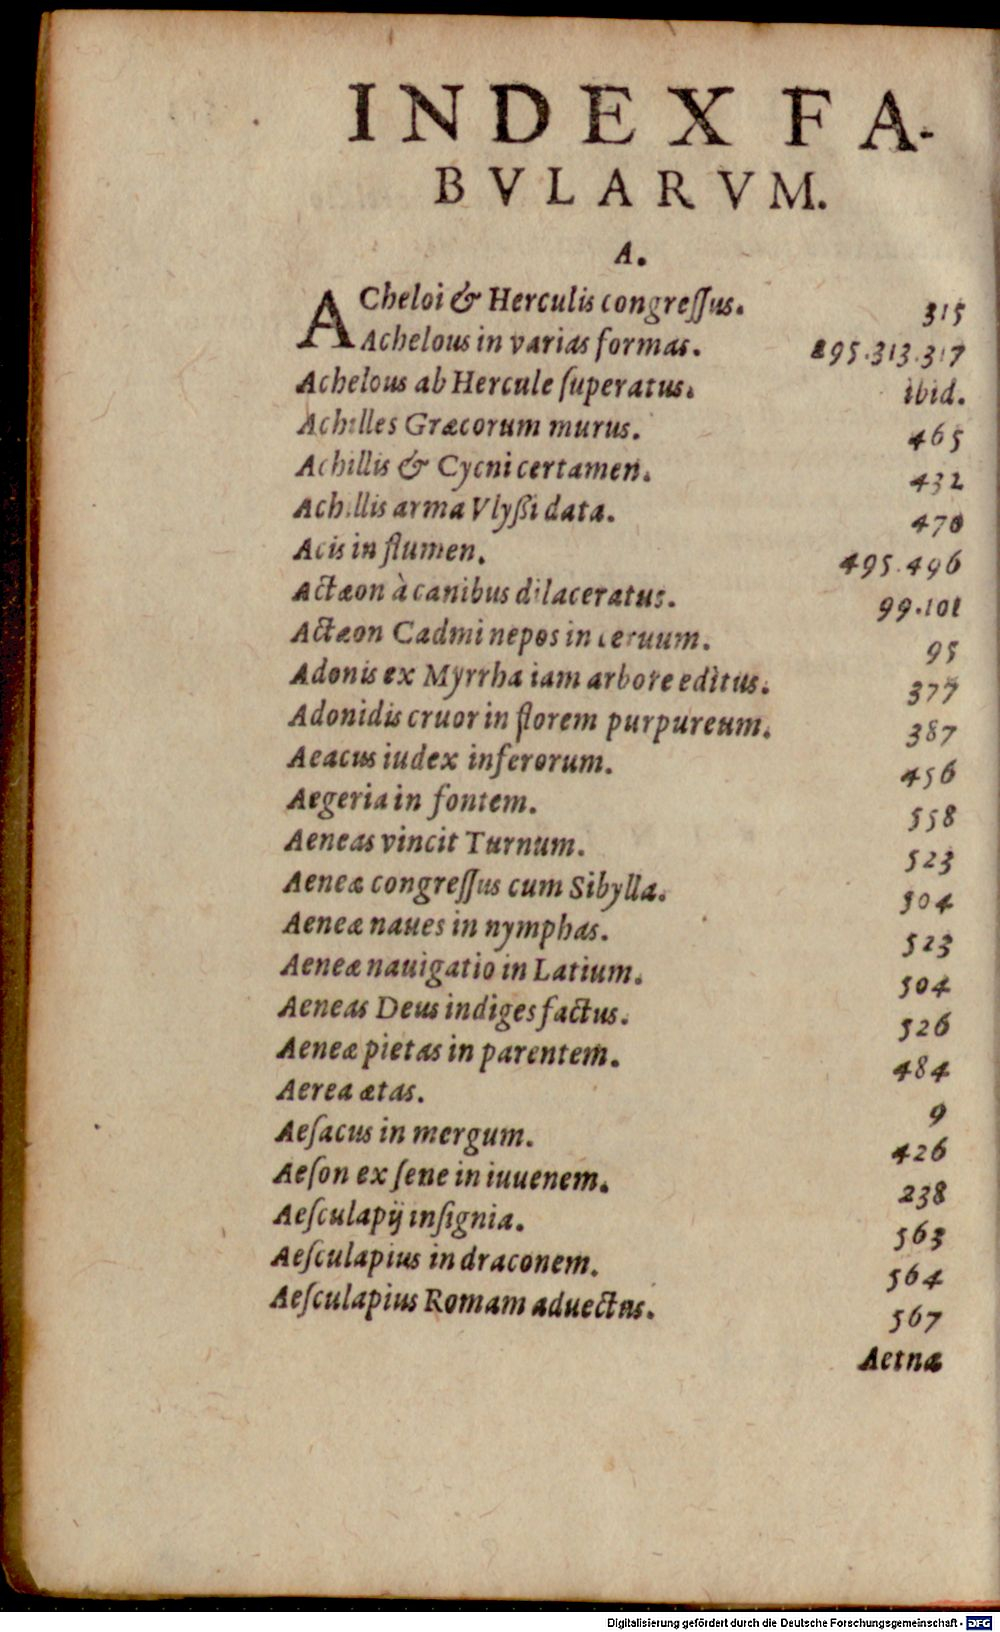 INDEX FA-
BVLARVM.
A.
ACheloi & Herculis congreſſus. 315
Achelous in varias formas. 295.313.317
Achelous ab Hercule ſuperatus. ibid.
Achilles Græcorum murus. 465
Achillis & Cycni certamen. 432
Achillis arma Vlyßi data. 470
Acis in flumen. 495.496
Actæon à canibus dilaceratus. 99.101
Actæon Cadmi nepos in ceruum. 95
Adonis ex Myrrha iam arbore editus. 377
Adonidis cruor in florem purpureum. 387
Aeacus iudex inferorum. 456
Aegeria in fontem. 558
Aeneas vincit Turnum. 523
Aeneæ congreſſus cum Sibylla. 504
Aeneæ naues in nymphas. 523
Aeneæ nauigatio in Latium. 504
Aeneas Deus indiges factus. 526
Aeneæ pietas in parentem. 484
Aerea ætas. 9
Aeſacus in mergum. 426
Aeſon ex ſene in iuuenem. 238
Aeſculapij inſignia. 563
Aeſculapius in draconem. 564
Aeſculapius Romam aduectus. 567
Aetnæ
Digitalisierung gefördert durch die Deutsche Forschungsgemeinschaft - DFG